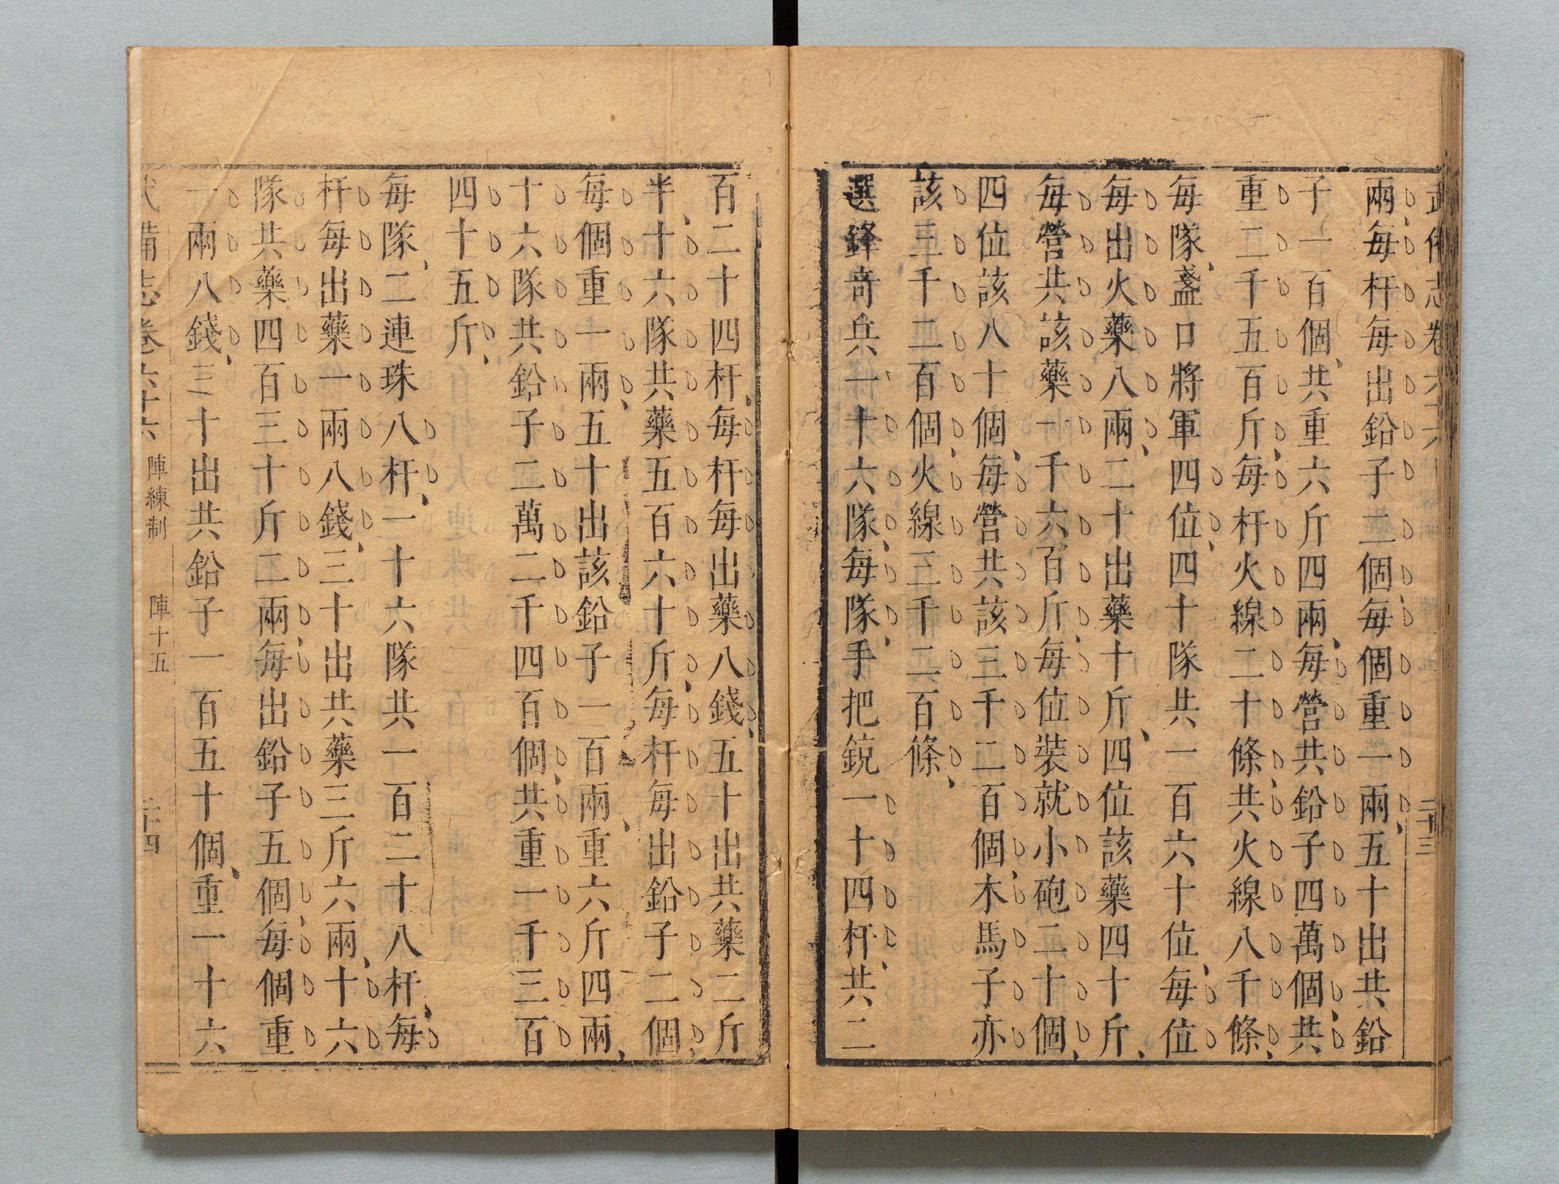 武備志卷六十六 二十三
兩、每杆每出鉛子二個每個重一兩、五十出共鉛
子一百個、共重六斤四兩、每營共鉛子四萬個、共
重二千五百斤、每杆火線二十條、共火線八千條、
每隊、盞口將軍四位、四十隊共一百六十位、每位
每出火藥八兩、二十出藥十斤、四位該藥四十斤、
每營共該藥一千六百斤、每位裝就小砲二十個、
四位該八十個、每營共該三千二百個、木馬子亦
該三千二百個、火線三千二百條、
選鋒奇兵一十六隊、每隊手把銃一十四杆、共二
百二十四杆、每杆每出藥八錢、五十出共藥二斤
半、十六隊共藥五百六十斤、每杆每出鉛子二個、
每個重一兩、五十出該鉛子一百兩、重六斤四兩、
十六隊共鉛子二萬二千四百個、共重一千三百
四十五斤、
每隊、二連珠八杆、一十六隊共一百二十八杆、每
杆每出藥一兩八錢、三十出共藥三斤六兩、十六
隊共藥四百三十斤二兩、每出鉛子五個、每個重
一兩八錢、三十出共鉛子一百五十個、重一十六
武備志卷六十六 陣練制 陣十五 二十四